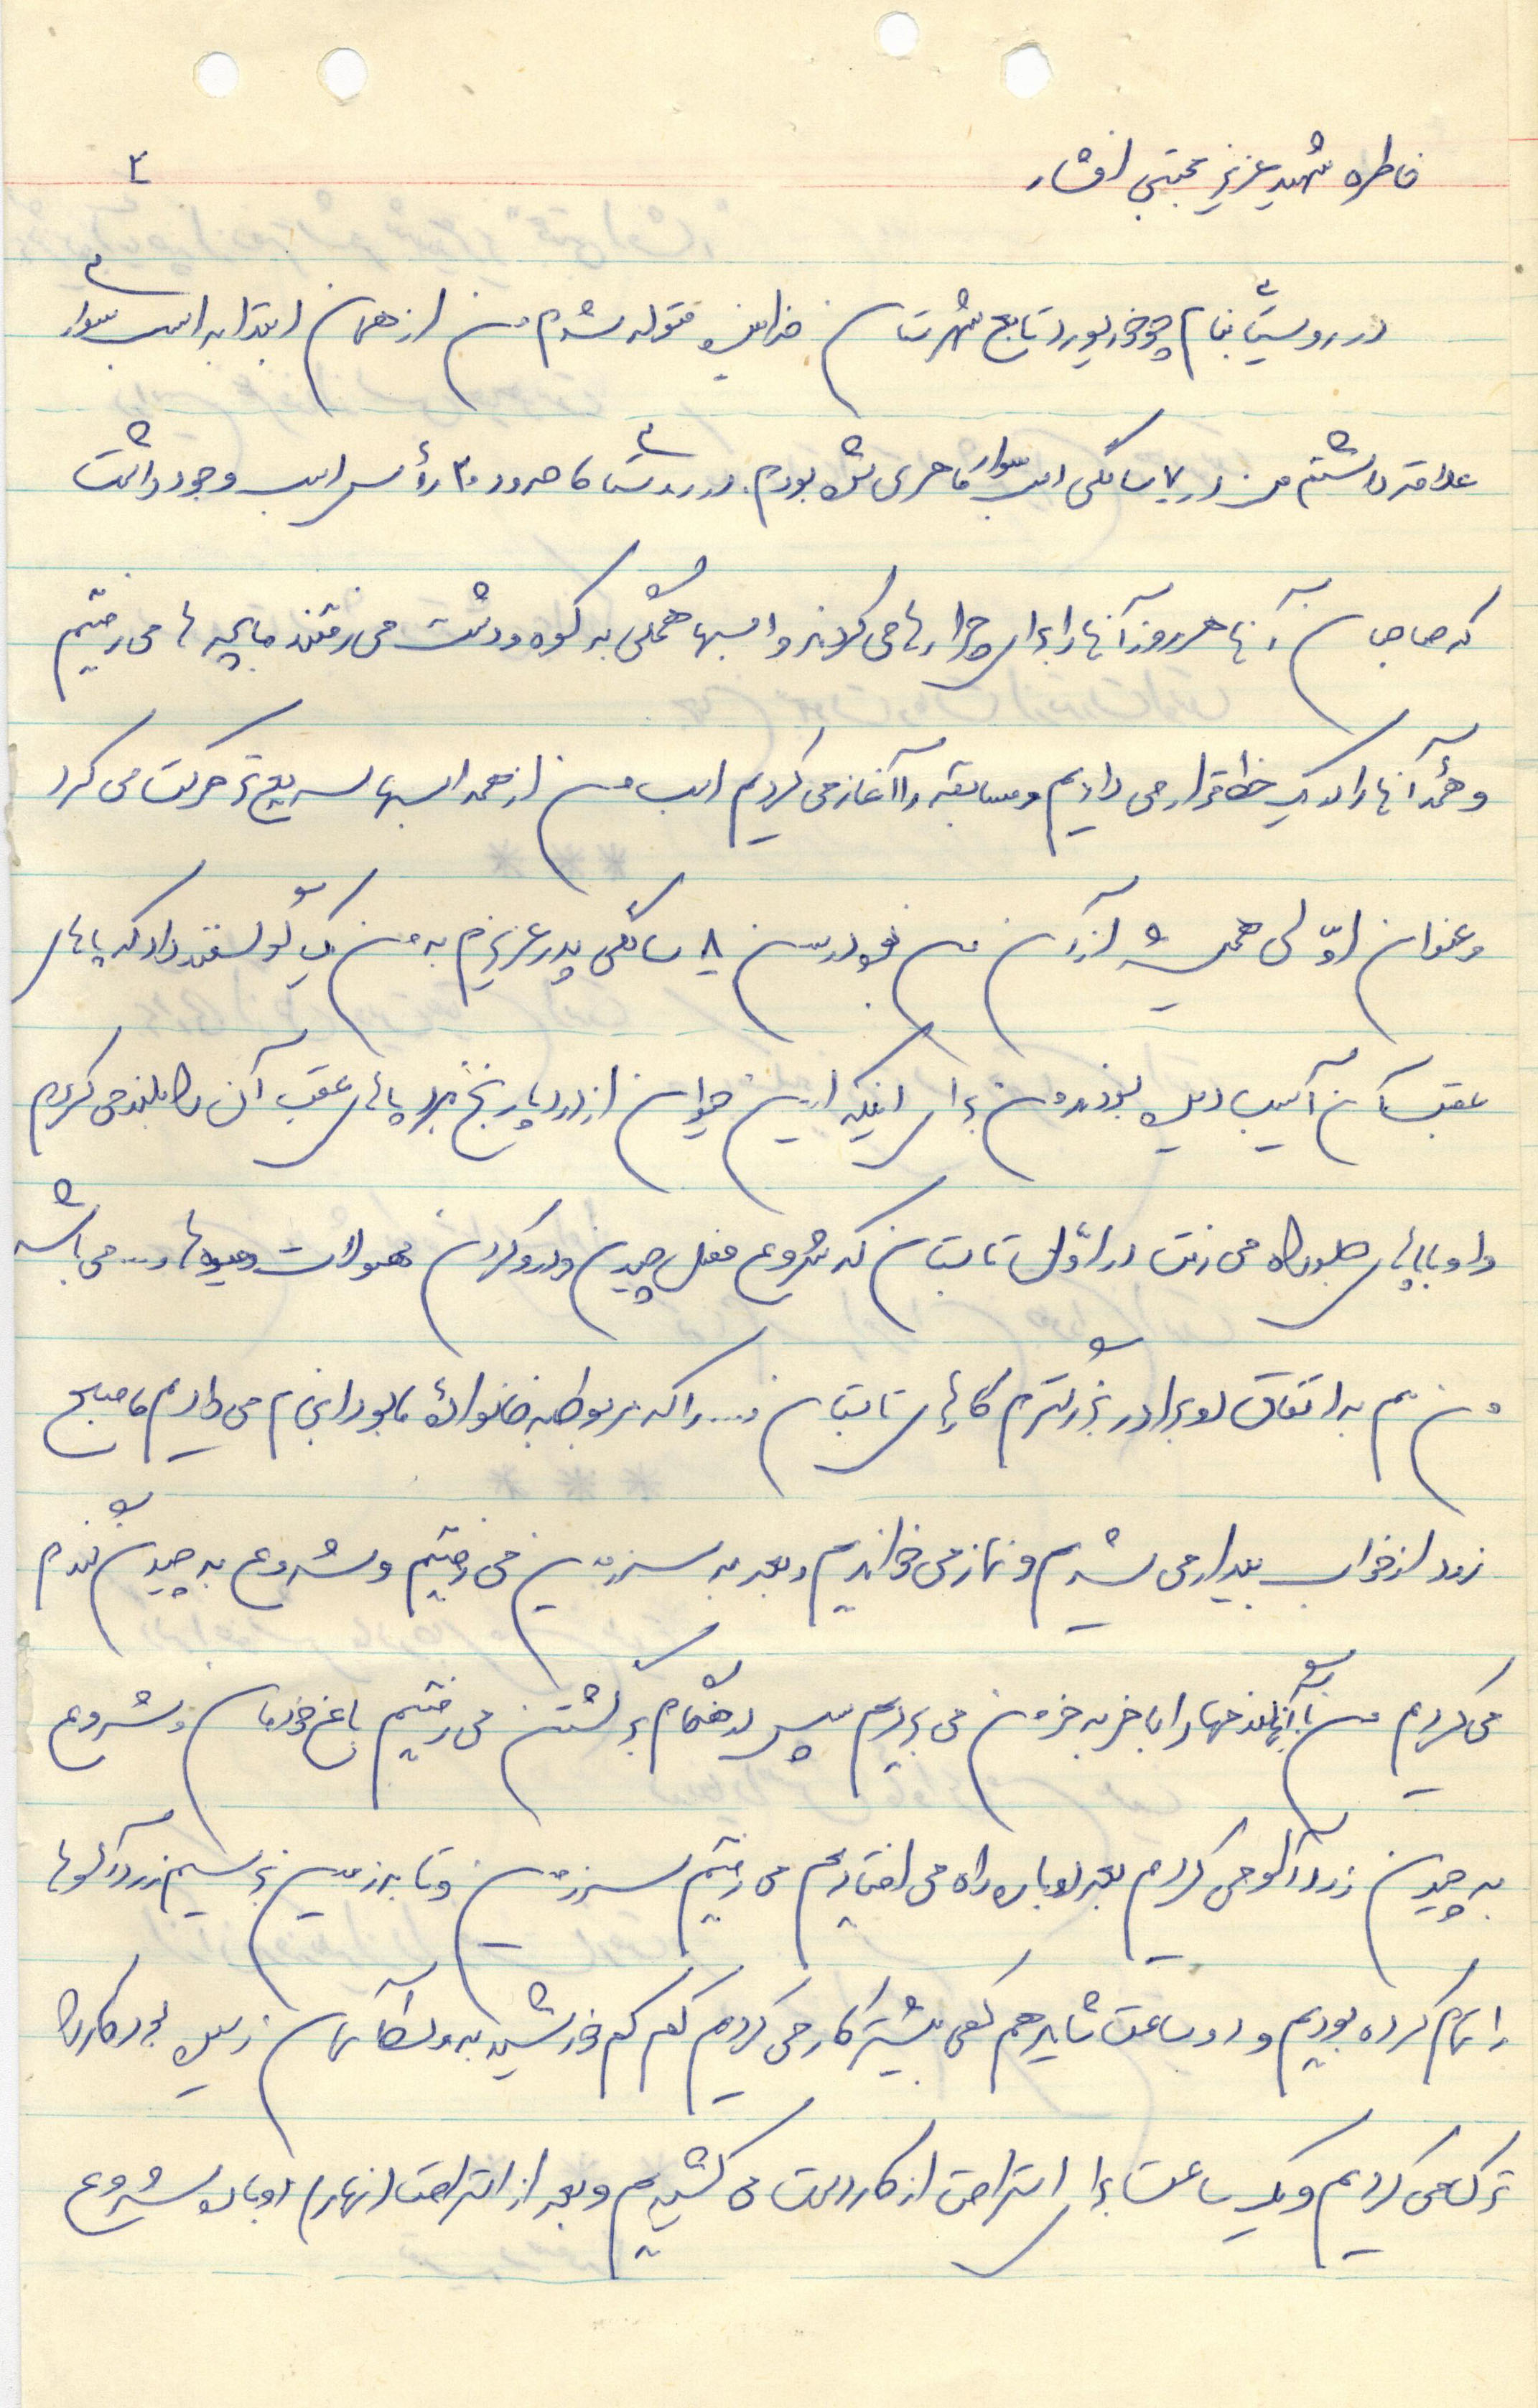 خاطره شهید عزیز مجتبی افشار
۳
در روستایی بنام چوخور یورد تابع شهرستان متولد شدم من از همان ابتدا به اسب سواری
علاقه داشتم من در ۷ سالگی اسب سوار ماهری شده بودم. در روستای ما حدود ۳۰ رأس اسب وجود داشت
که صاحبان آنها هر روز آنها را برای چرا رها می کردند و اسبها همگی به کوه و دشت می رفتند ما بچه ها می رفتیم
و همۀ آنها را در یک خط قرار می دادیم و مسابقه را آغاز می کردیم اسب من از همه اسبها سریع تر حرکت می کرد
و عنوان اوّلی همیشه از آن من بود در سن ۸ سالگی پدر عزیزم به من یک گوسفند داد که پاهای
عقب آن آسیب دیده بودند و من برای اینکه این حیوان از درد پا رنج نبرد پاهای عقب آن را بلند می کردم
و او با پاهای جلو راه می رفت در اوّل تابستان که شروع فصل چیدن و درو کردن محصولات و میوه ها و... می باشد
من هم به اتفاق دو برادر بزرگترم کارهای تابستان و.... را که مربوط به خانوادۀ ما بود انجام می دادیم ما صبح
زود از خواب بیدار می شدیم و نماز می خواندیم و بعد به سر زمین می رفتیم و شروع به چیدن گندم
می کردیم من با آنها گندمها را با خر به خرمن می بردیم سپس در هنگام برگشتن می رفتیم باغ خودمان و شروع
به چیدن زردآلو می کردیم بعد دوباره راه می افتادیم می رفتیم سر زمین و تا به زمین برسیم زردآلوها
را تمام کرده بودیم و دو ساعت شاید هم کمی بیشتر کار می کردیم کم کم خورشید به وسط آسمان رسیده بود کار را
ترک می کردیم و یک ساعت برای استراحت از کار دست می کشیدیم و بعد از استراحت (نهار) دوباره شروع